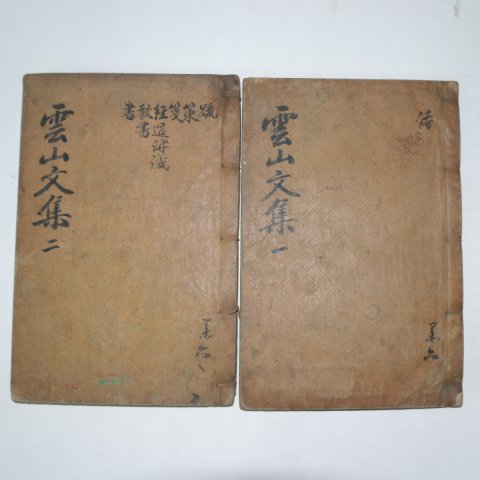 雲山文集 一
詩
共六
雲山文集 二
疏
策
箋
經筵講議
教書
書
共六